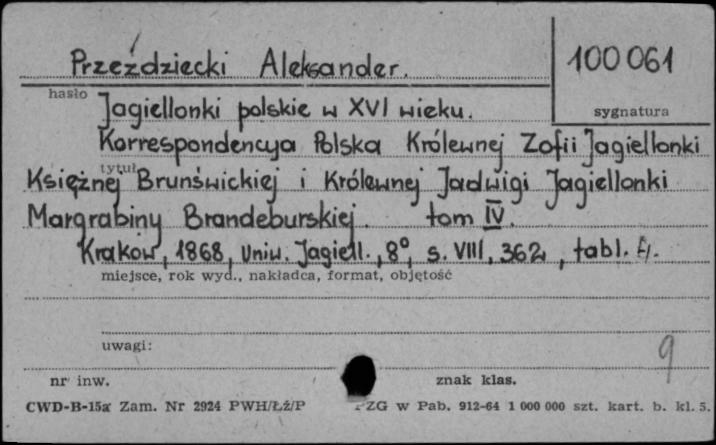 Przeździecki Aleksander. 100 061
hasło
sygnatura
Jagiellonki polskie w XVI wieku.
Korrespondencya Polska Królewnej Zofii Jagiellonki
tytuł
Księżnej Brunświckiej i Królewnej Jadwigi Jagiellonki
Margrabiny Brandeburskiej. tom IV.
Kraków, 1868, Uniw. Jagiell., 8°, s. VIII, 362, tabl. 4.
miejsce, rok wyd., nakładca, format, objętość
uwagi:
9
nr inw. znak klas.
CWD-B-15a Zam. Nr 2924 PWH/Łź/P PZG w Pab. 912-64 1 000 000 szt. kart. b. kl. 5.